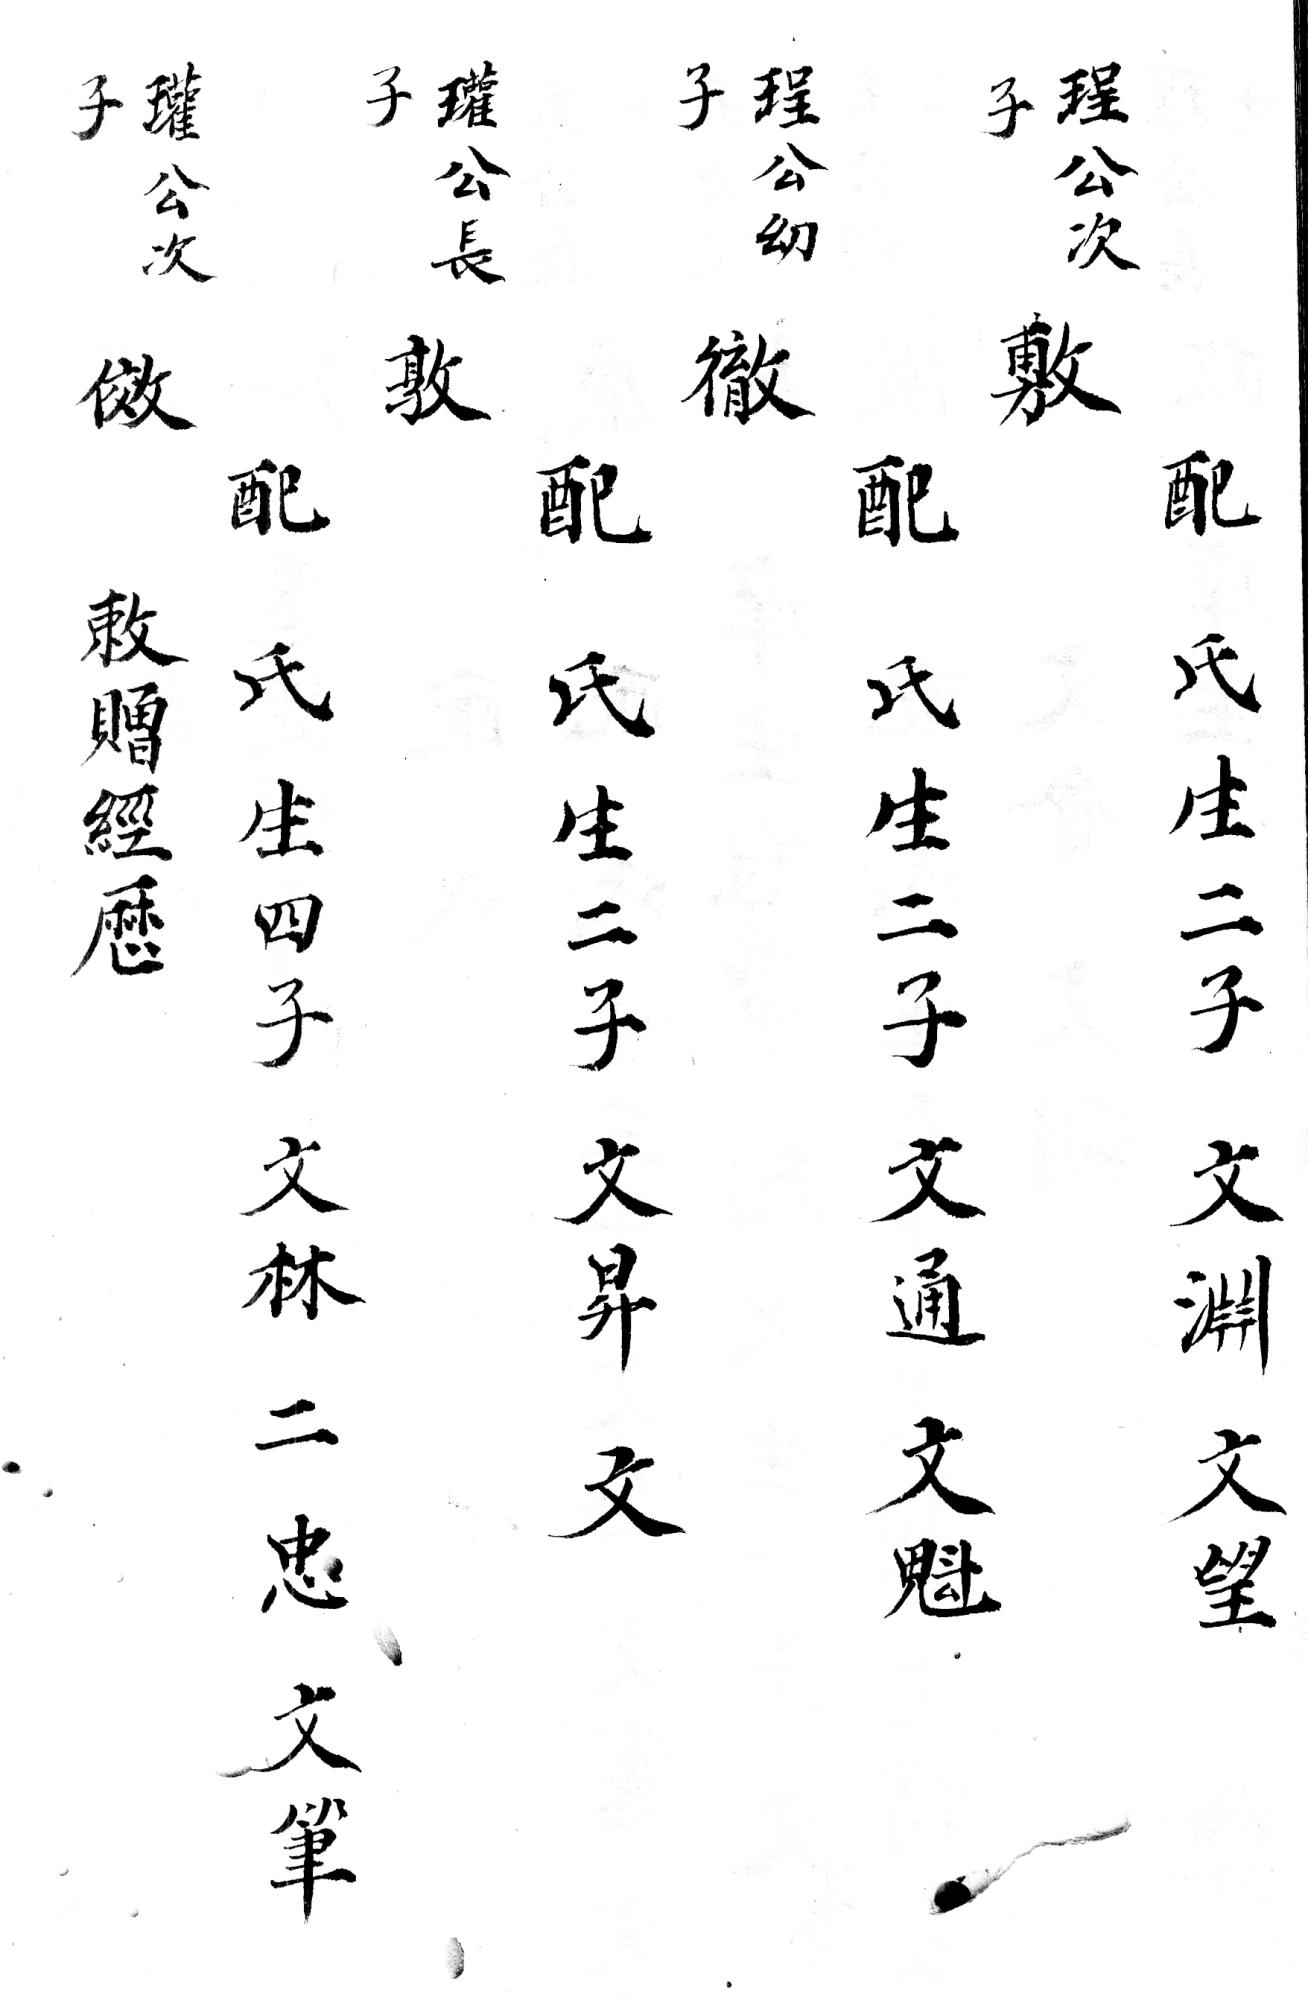 配　氏生二子　文淵　文望
珵公次
子
敷
配　氏生二子　文通　文魁
珵公幼
子
徹
配　氏生二子　文昇　文
瓘公長
子
敦
配　氏生四子　文林　二忠　文筆
瓘公次
子
傚　敕贈經歷